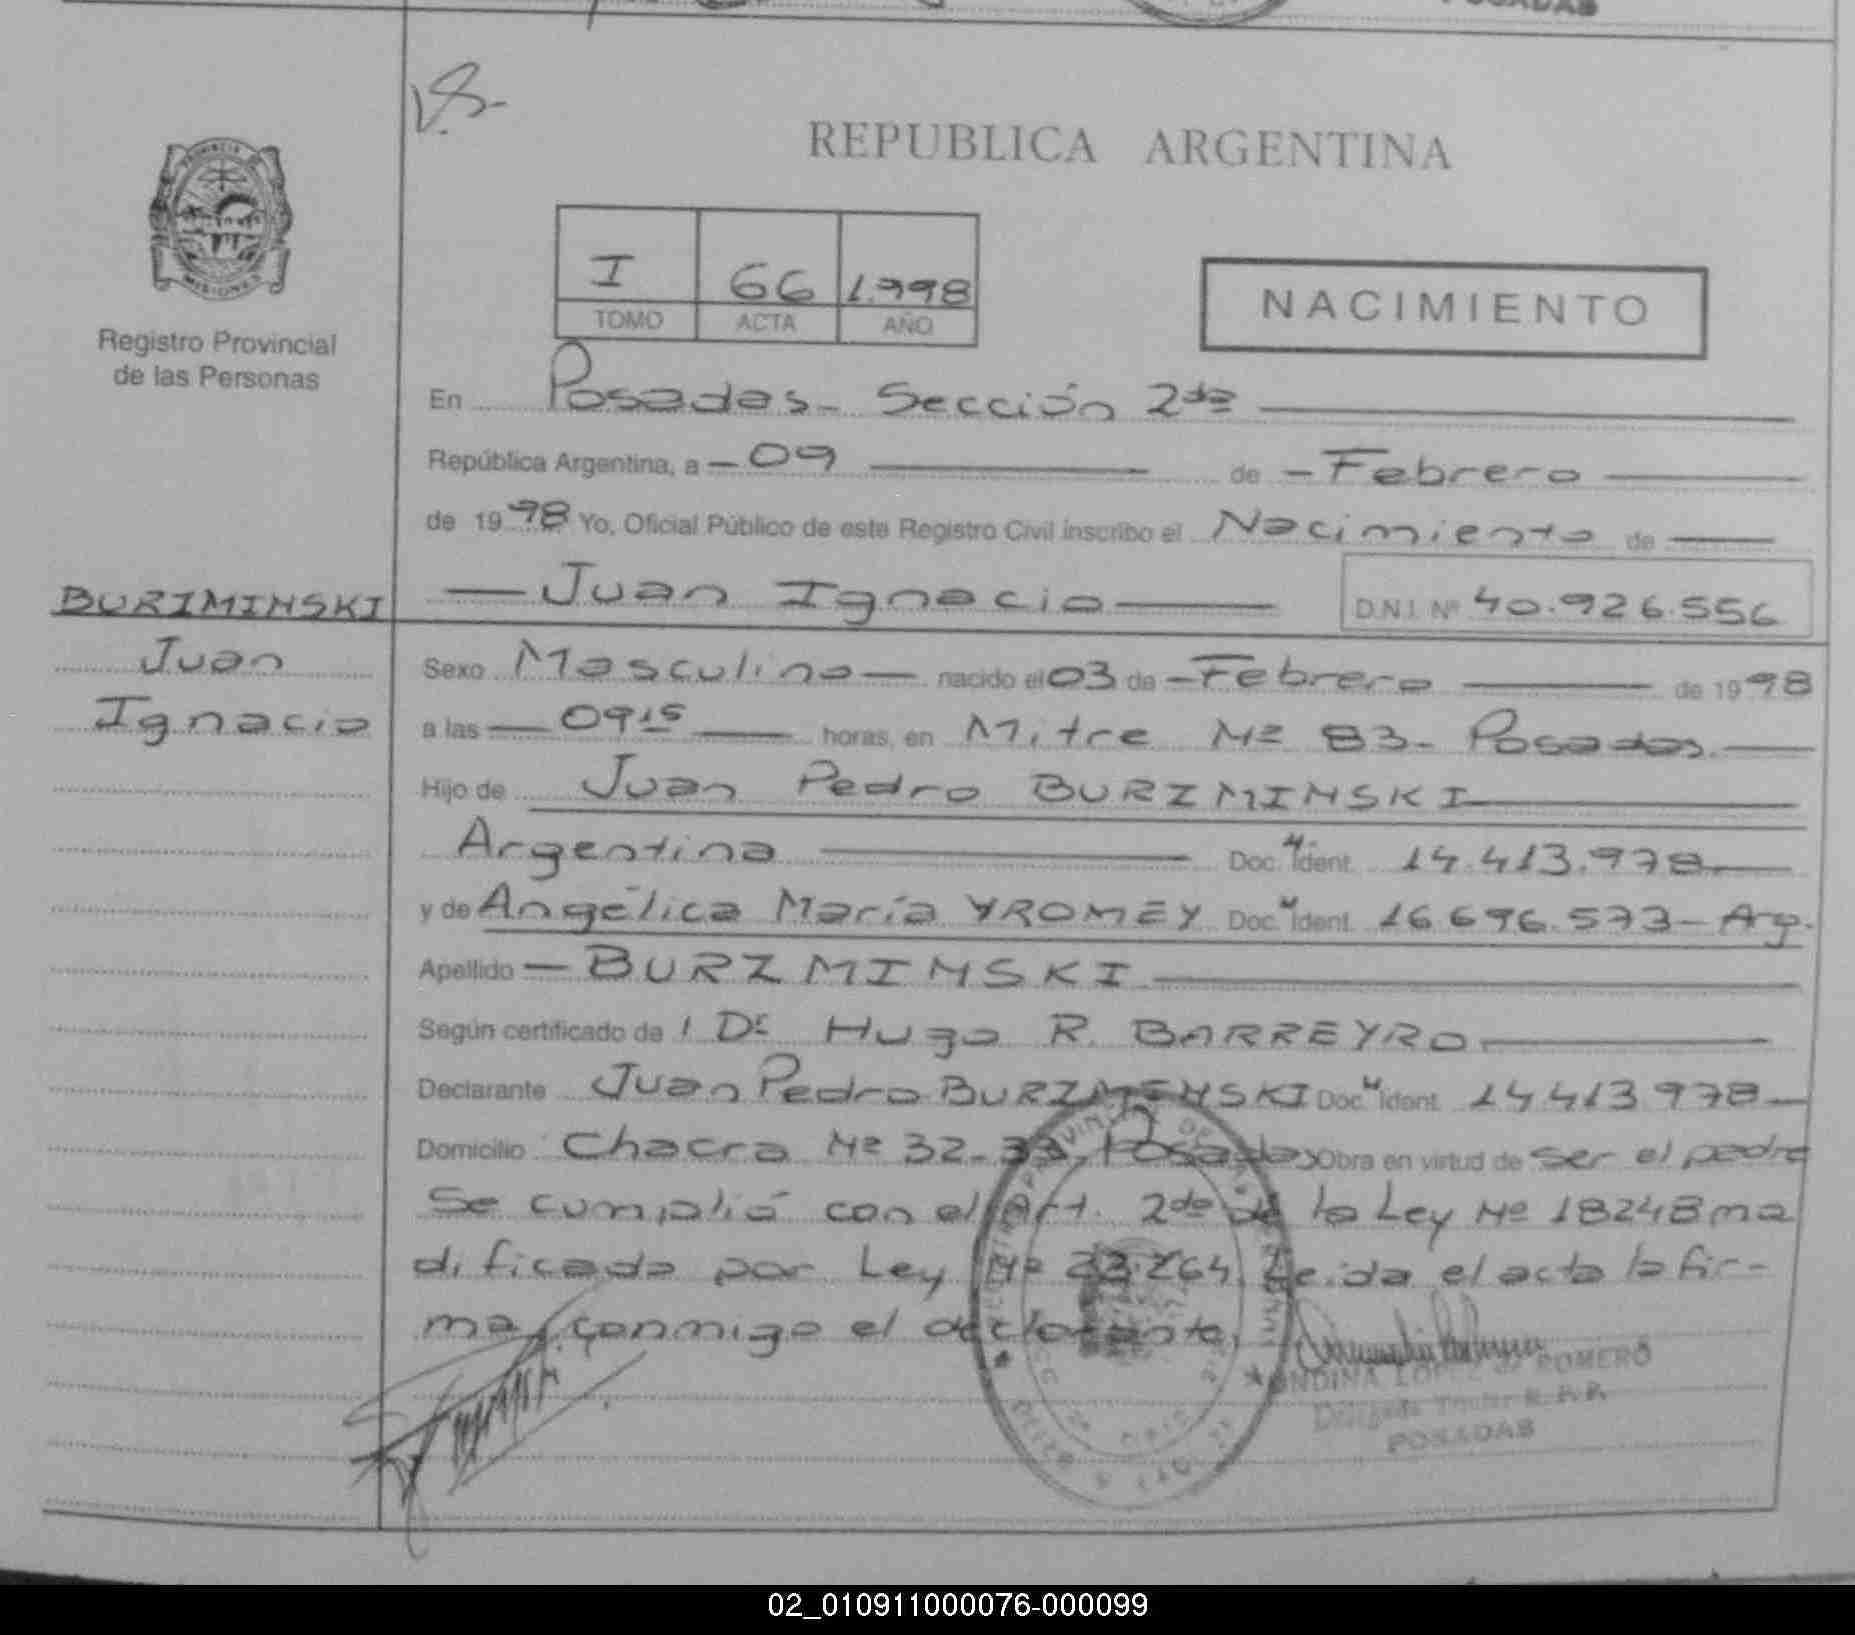 POSADAS
V.S.-
REPUBLICA ARGENTINA
PROVINCIA DE
MISIONES
Registro Provincial
de las Personas
I 66 1.998
TOMO ACTA AÑO
NACIMIENTO
En Posadas - Sección 2da
República Argentina, a - 09 de - Febrero
de 1998 Yo, Oficial Público de este Registro Civil inscribo el Nacimiento de
BURZMINSKI
Juan
Ignacio
Juan Ignacio D.N.I. Nº 40.926.556
Sexo Masculino nacido el 03 de - Febrero de 1998
a las 09 15 horas, en Mitre Nº 83 - Posadas.
Hijo de Juan Pedro BURZMINSKI
Argentina Doc. N Ident. 14.413.978
y de Angélica María YROMEY Doc. N Ident. 16.696.573 - Arg.
Apellido - BURZMINSKI
Según certificado de l Dr Hugo R. BARREYRO
Declarante Juan Pedro BURZMINSKI Doc. N Ident. 14.413.978
Domicilio Chacra Nº 32-33, Posadas Obra en virtud de ser el padre
Se cumplió con el Art. 2do de la Ley Nº 18248 mo
dificado por Ley Nº 23.264. Leida el acta la fir-
ma conmigo el declarante.
ONDINA LOPEZ de ROMERO
Delegada Titular R. P. P.
POSADAS
02_010911000076-000099